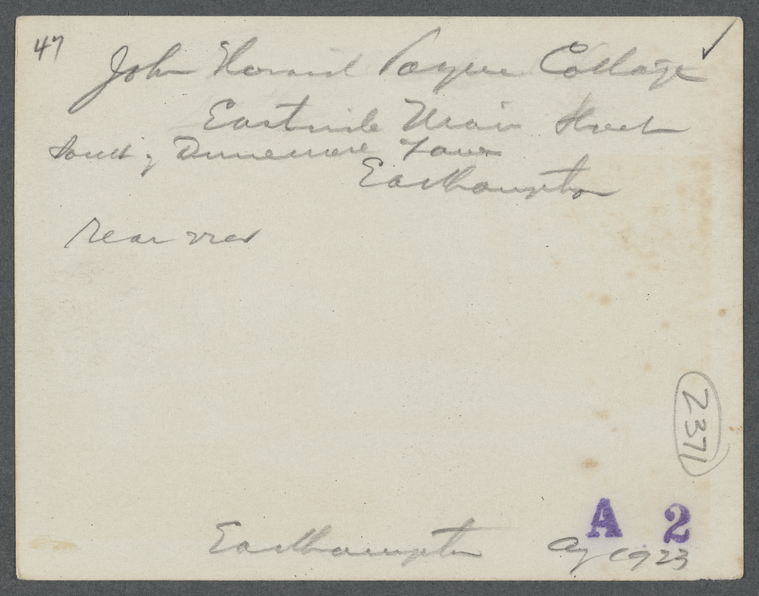 47
John Howard Payne Cottage
East side Main Street
South of Dunemere Lane
Easthampton
Rear view
2371
A 2
Easthampton Ag 1923